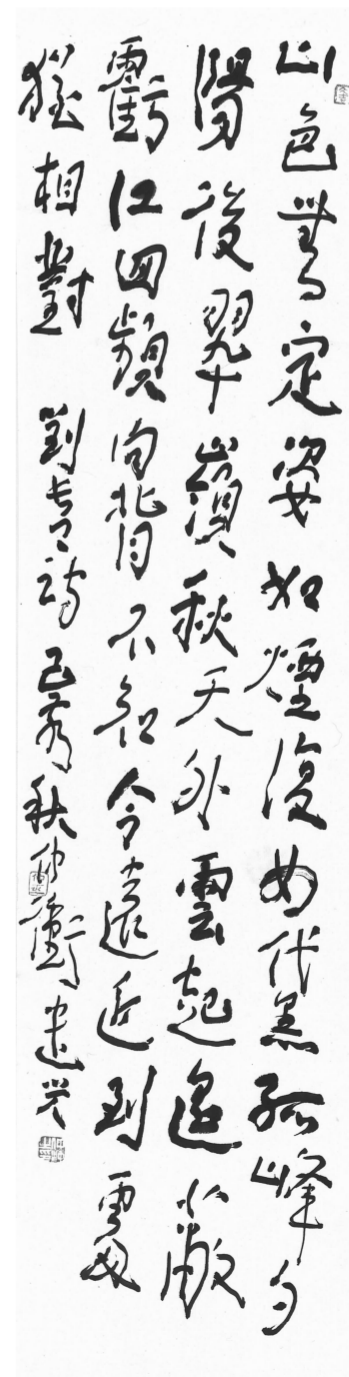 山色無定姿如煙復如黛孤峰夕
陽後翠嶺秋天外雲起遥蔽
虧江回頻向背不知今遠近到處
猶相對 劉長卿詩 己亥秋仲衡遣興